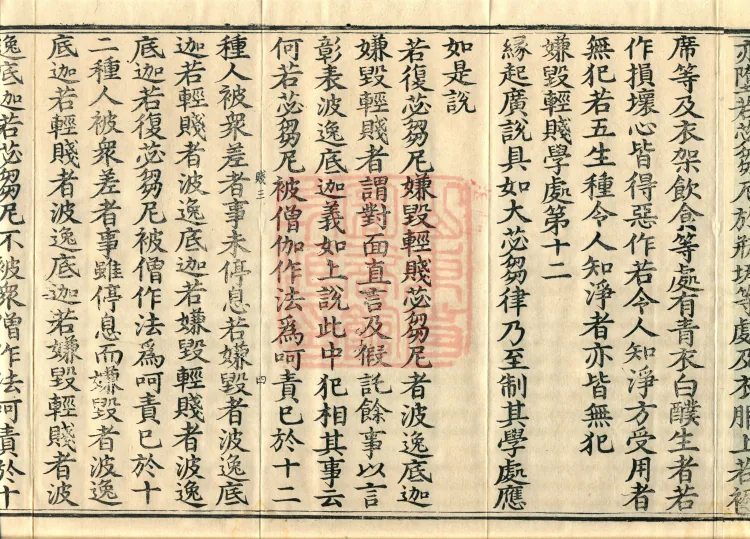 亦墮若苾芻尼於瓶
等處及衣服上若
席等及衣架飲食等處有青衣白醭生者若
作損壞心皆得惡作若令人知淨方受用者
無犯若五生種令人知淨者亦皆無犯
嫌毀輕賤學處第十二
緣起廣說具如大苾芻律乃至制其學處應
如是說
若復苾芻尼嫌毀輕賤苾芻尼者波逸底迦
嫌毀輕賤者謂對面直言及假託餘事以言
彰表波逸底迦義如上說此中犯相其事云
何若苾芻尼被僧伽作法為呵責已於十二
賤三
四
種人被眾差者事未停息若嫌毀者波逸底
迦若輕賤者波逸底迦若嫌毀輕賤者波逸
底迦若復苾芻尼被僧作法為呵責已於十
二種人被眾差者事雖停息而嫌毀者波逸
底迦若輕賤者波逸底迦若嫌毀輕賤者波
逸底迦若苾芻尼不被眾僧作法呵責於十